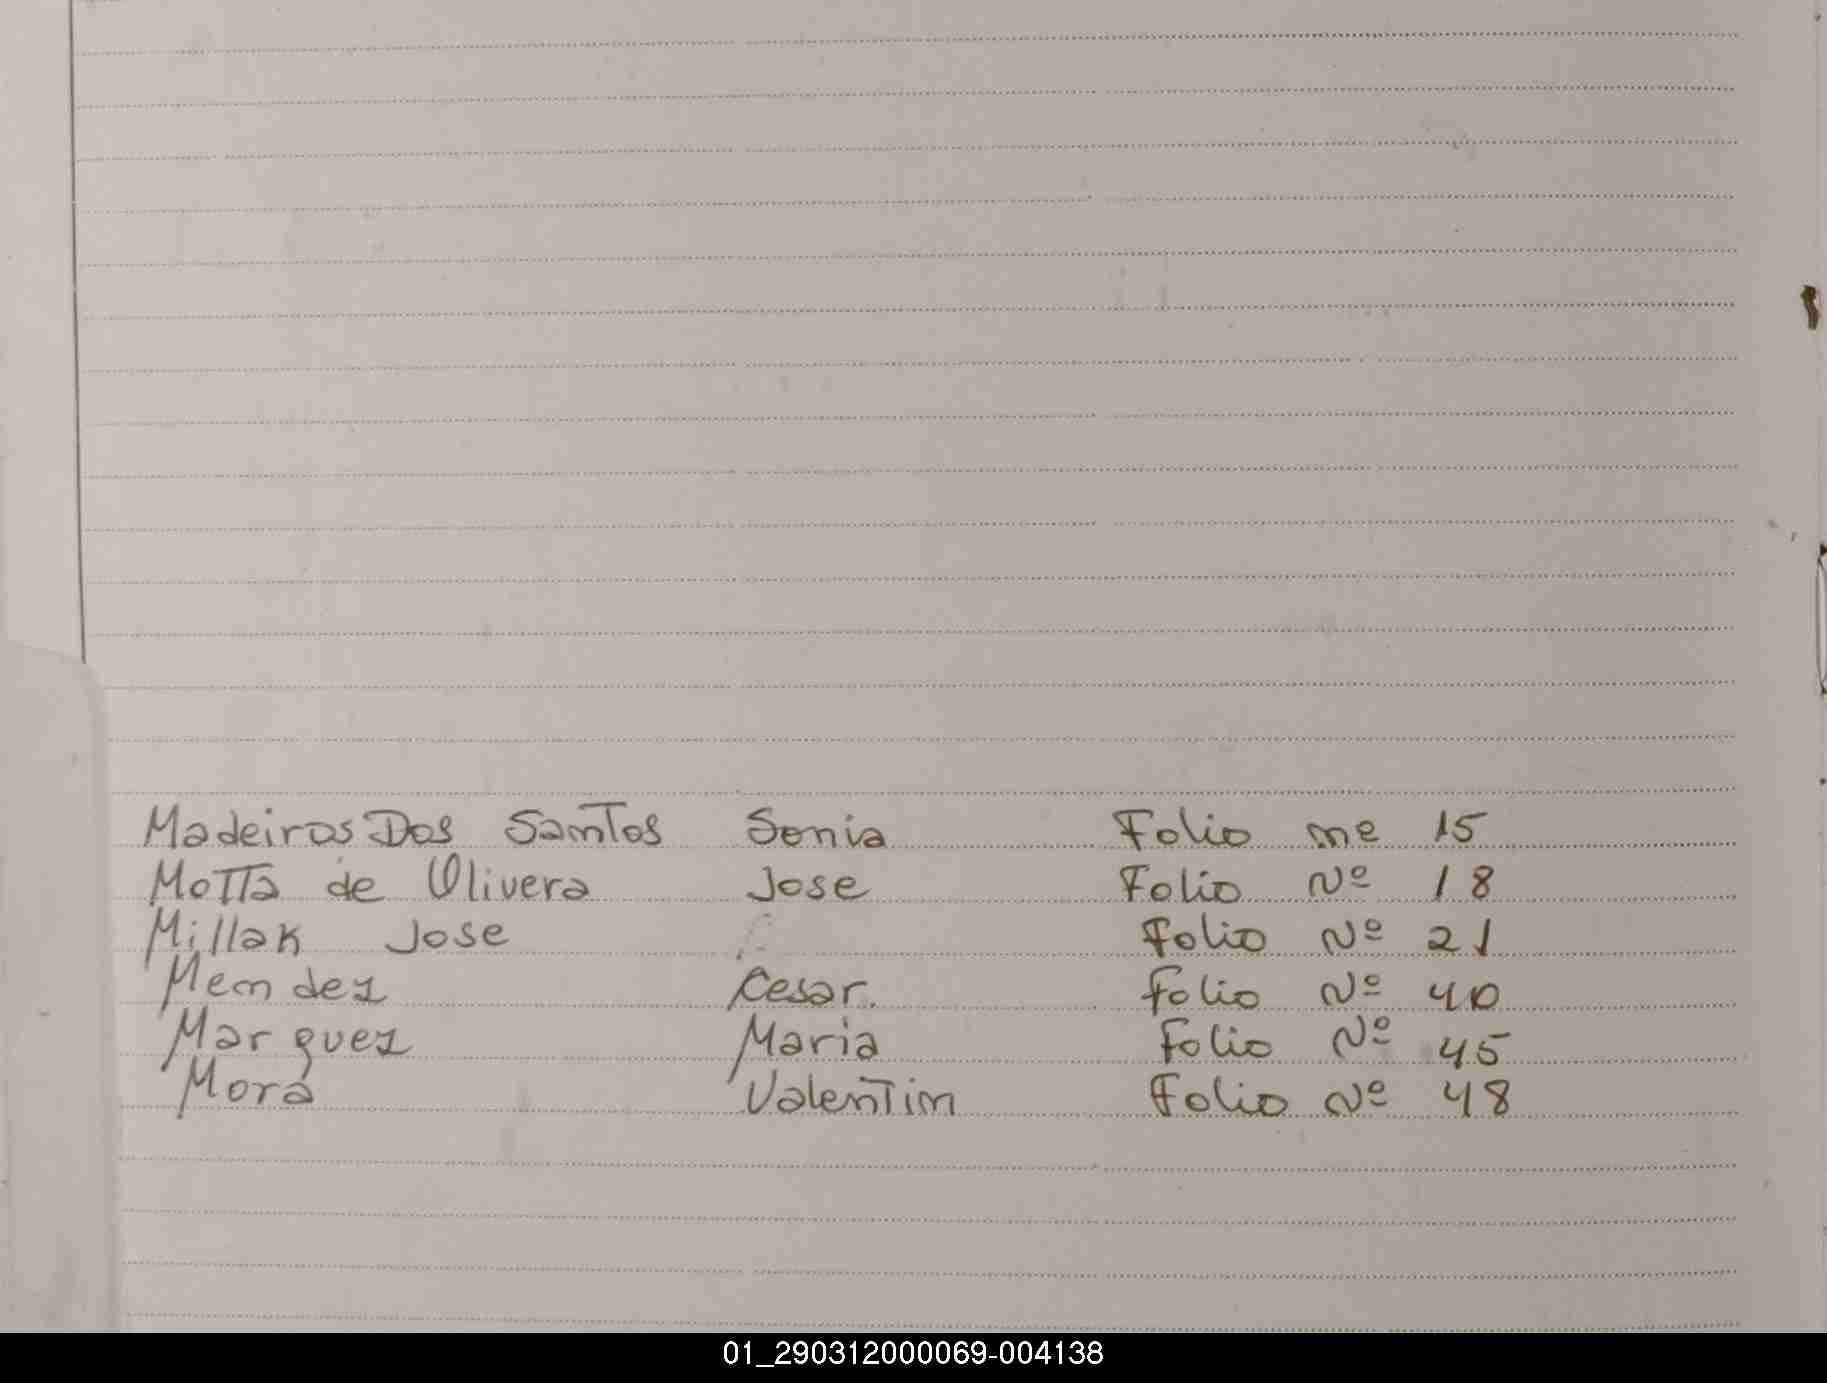 Madeiros Dos Santos Sonia Folio me 15
Motta de Olivera Jose Folio Nº 18
Millak Jose Folio Nº 21
Mendez Cesar. Folio Nº 40
Marquez Maria Folio Nº 45
Mora Valentin Folio Nº 48
01_290312000069-004138